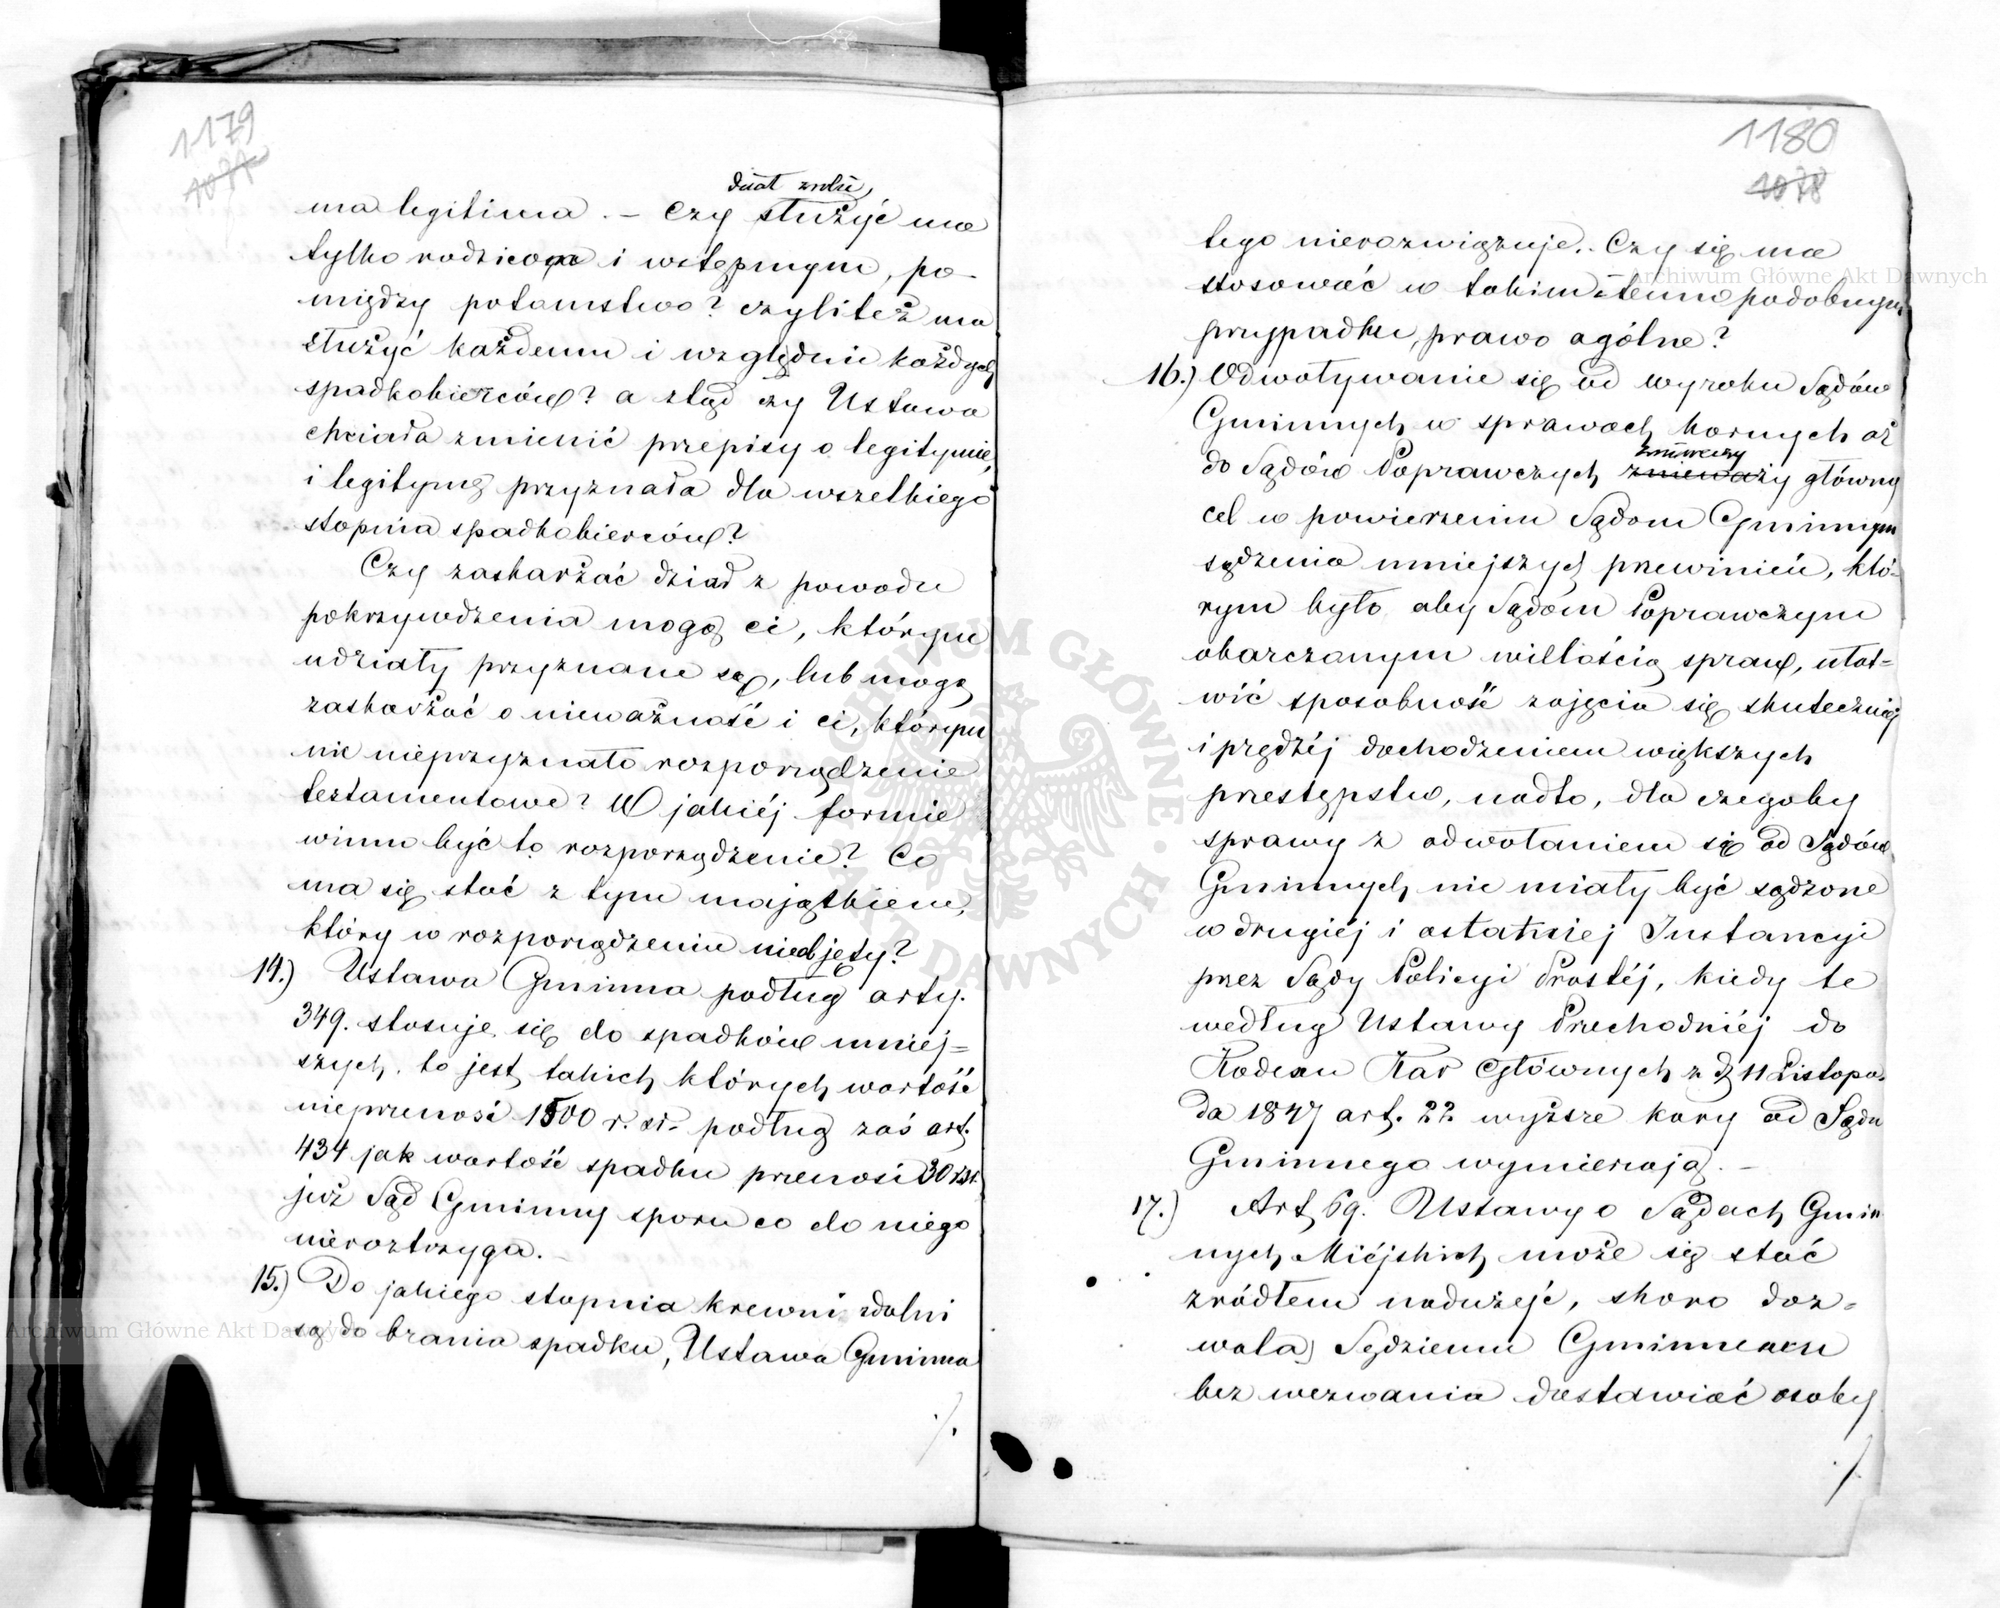 1179
1077
ma legitima. – Czy służyć ma
tylko rodzicom i wstępnym, po-
między potomstwo? czyliteż ma
służyć każdemu i względnie każdych
spadkobierców? a ztąd czy Ustawa
chciała zmienić przepisy o legitymie,
i legitymę przyznała dla wszelkiego
stopnia spadkobierców?
Czy zaskarżać dział z powodu
pokrzywdzenia mogą ci, którym
udziały przyznane są, lub mogą
zaskarżać o nieważność i ci, którym
nic nieprzyznało rozporządzenie
testamentowe? W jakiéj formie
winno być to rozporządzenie? Co
ma się stać z tym majątkiem,
który w rozporządzeniu nieobjęty?
14.) Ustawa Gminna podług arty.
349. stosuje się do spadków mniej=
szych. to jest takich których wartość
nieprzenosi 1500 r. sr. podług zaś art.
434 jak wartość spadku przenosi 30 rsr.
już Sąd Gminny sporu co do niego
nieroztrzyga. –
15.) Do jakiego stopnia krewni zdolni
są do brania spadku, Ustawa Gminna
./.
1180
1078
tego nierozwiązuje. Czy się ma
stosować w takim i temu podobnym
przypadku, prawo ogólne?
16.) Odwoływanie się od wyroku Sądów
Gminnych w sprawach karnych aż
do Sądów Poprawczych zniweczy główny
cel w powierzeniu Sądom Gminnym
sądzenia mniejszych przewinień, któ-
rym było, aby Sądom Poprawczym
obarczonym wielością spraw, ułat=
wić sposobność zajęcia się skuteczniéj
i prędzéj dochodzeniem większych
przestępstw, nadto, dla czegoby
sprawy z odwołaniem się od Sądów
Gminnych nie miały być sądzone
w drugiéj i ostatniej Instancyi
przez Sądy Policyi Prostéj, kiedy te
według Ustawy Przechodniéj do
Kodexu Kar Głównych z d. 11 Listopa-
da 1847 art. 22 wyższe kary od Sądu
Gminnego wymierzają. –
17.) Art. 69. Ustawy o Sądach Gmin
nych Miéjskich może się stać
zródłem nadużyć, skoro doz=
wala Sędziemu Gminnemu
bez wezwania dostawiać osoby
./.
Archiwum Główne Akt Dawnych
Archiwum Główne Akt Dawnych
ARCHIWUM GŁÓWNE · AKT DAWNYCH ·